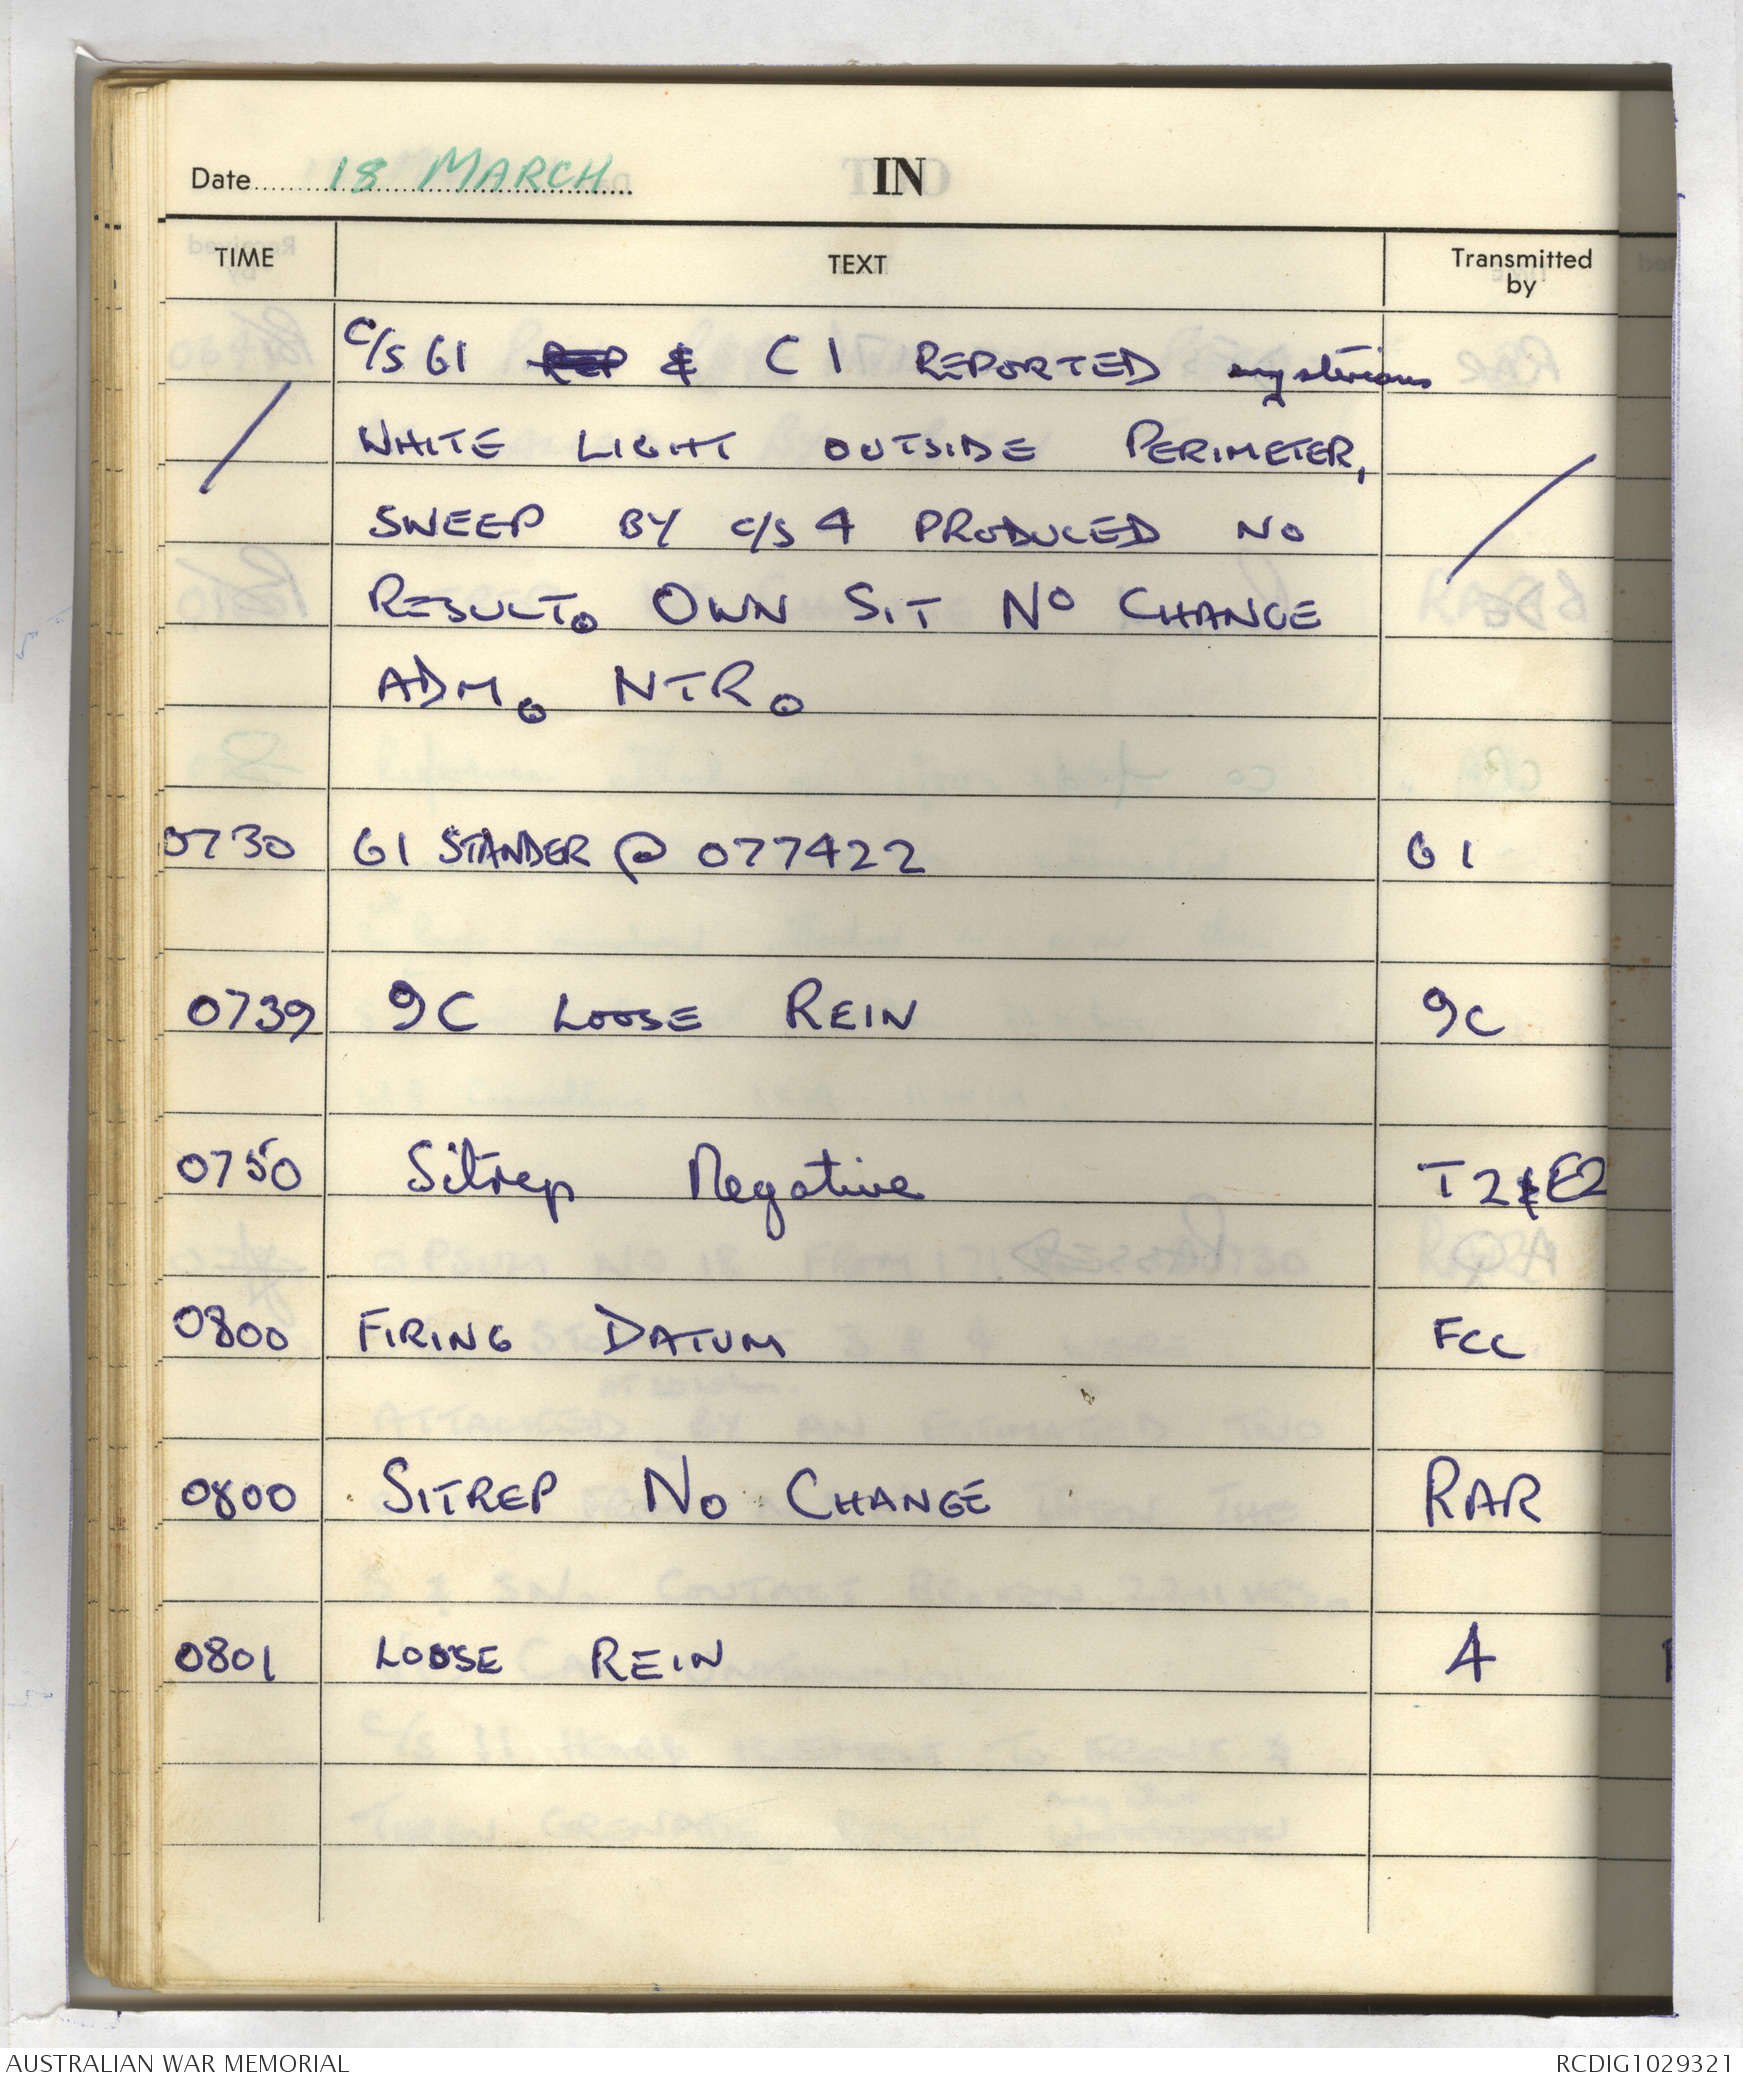 Date 18 MARCH IN
TIME TEXT Transmitted by
C/S G1 & C1 REPORTED mysterious
WHITE LIGHT OUTSIDE PERIMETER,
SWEEP BY C/S 4 PRODUCED NO
RESULT. OWN SIT NO CHANGE
ADM. NTR.
0730 G1 STANDER @ 077422 G1
0739 9C LOOSE REIN 9C
0750 Sitrep Negative T2 & E2
0800 FIRING DATUM FCC
0800 SITREP NO CHANGE RAR
0801 LOOSE REIN 4
AUSTRALIAN WAR MEMORIAL RCDIG1029321